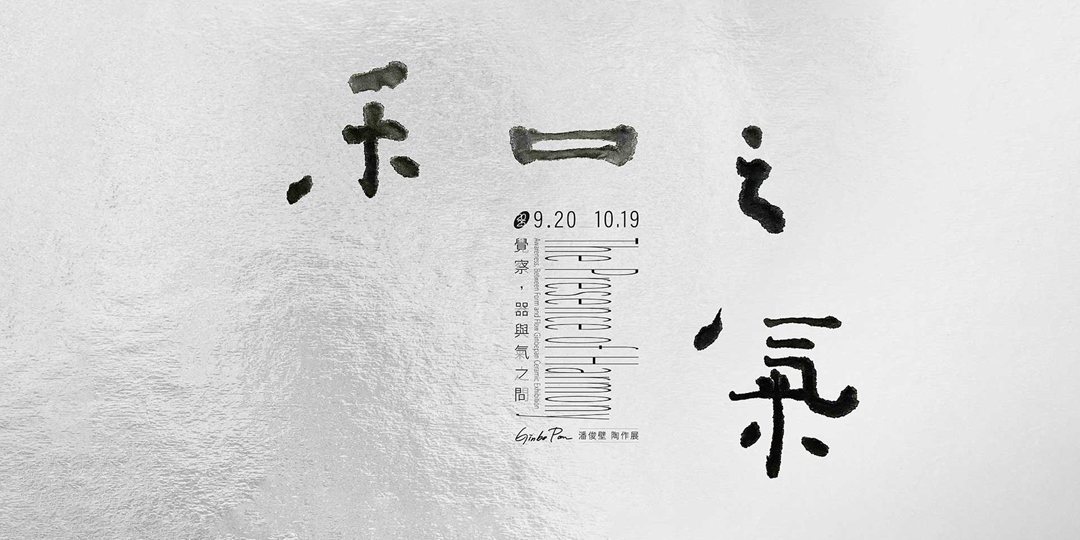 和
之
氣
9.20 10.19
The Presence of Harmony
Awareness, Between Form and Flow Ginbepan Ceramic Exhibition
覺察,器與氣之間
Ginbe Pan 潘俊壁 陶作展